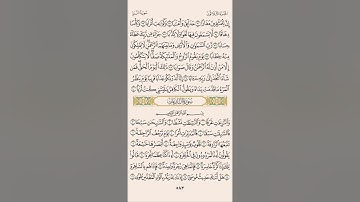 سورة النبأ
الجزء الثلاثون
إِنَّ لِلْمُتَّقِينَ مَفَازًا ۝ حَدَائِقَ وَأَعْنَابًا ۝ وَكَوَاعِبَ أَتْرَابًا ۝ وَكَأْسًا
دِهَاقًا ۝ لَّا يَسْمَعُونَ فِيهَا لَغْوًا وَلَا كِذَّابًا ۝ جَزَاءً مِّن رَّبِّكَ عَطَاءً
حِسَابًا ۝ رَّبِّ السَّمَٰوَٰتِ وَالْأَرْضِ وَمَا بَيْنَهُمَا الرَّحْمَٰنِ لَا يَمْلِكُونَ
مِنْهُ خِطَابًا ۝ يَوْمَ يَقُومُ الرُّوحُ وَالْمَلَٰئِكَةُ صَفًّا لَّا يَتَكَلَّمُونَ
إِلَّا مَنْ أَذِنَ لَهُ الرَّحْمَٰنُ وَقَالَ صَوَابًا ۝ ذَٰلِكَ الْيَوْمُ الْحَقُّ فَمَن
شَاءَ اتَّخَذَ إِلَىٰ رَبِّهِ مَآبًا ۝ إِنَّا أَنذَرْنَٰكُمْ عَذَابًا قَرِيبًا يَوْمَ يَنظُرُ
الْمَرْءُ مَا قَدَّمَتْ يَدَاهُ وَيَقُولُ الْكَافِرُ يَٰلَيْتَنِي كُنتُ تُرَٰبًا ۝
سورة النازعات
بِسْمِ اللَّهِ الرَّحْمَٰنِ الرَّحِيمِ
وَالنَّٰزِعَٰتِ غَرْقًا ۝ وَالنَّٰشِطَٰتِ نَشْطًا ۝ وَالسَّٰبِحَٰتِ سَبْحًا ۝
فَالسَّٰبِقَٰتِ سَبْقًا ۝ فَالْمُدَبِّرَٰتِ أَمْرًا ۝ يَوْمَ تَرْجُفُ الرَّاجِفَةُ ۝
تَتْبَعُهَا الرَّادِفَةُ ۝ قُلُوبٌ يَوْمَئِذٍ وَاجِفَةٌ ۝ أَبْصَٰرُهَا خَٰشِعَةٌ ۝
يَقُولُونَ أَءِنَّا لَمَرْدُودُونَ فِي الْحَافِرَةِ ۝ أَءِذَا كُنَّا عِظَٰمًا نَّخِرَةً ۝
قَالُوا تِلْكَ إِذًا كَرَّةٌ خَاسِرَةٌ ۝ فَإِنَّمَا هِيَ زَجْرَةٌ وَٰحِدَةٌ ۝ فَإِذَا هُم بِالسَّاهِرَةِ ۝
هَلْ أَتَىٰكَ حَدِيثُ مُوسَىٰ ۝ إِذْ نَادَىٰهُ رَبُّهُ بِالْوَادِ الْمُقَدَّسِ طُوًى ۝
٥٨٣